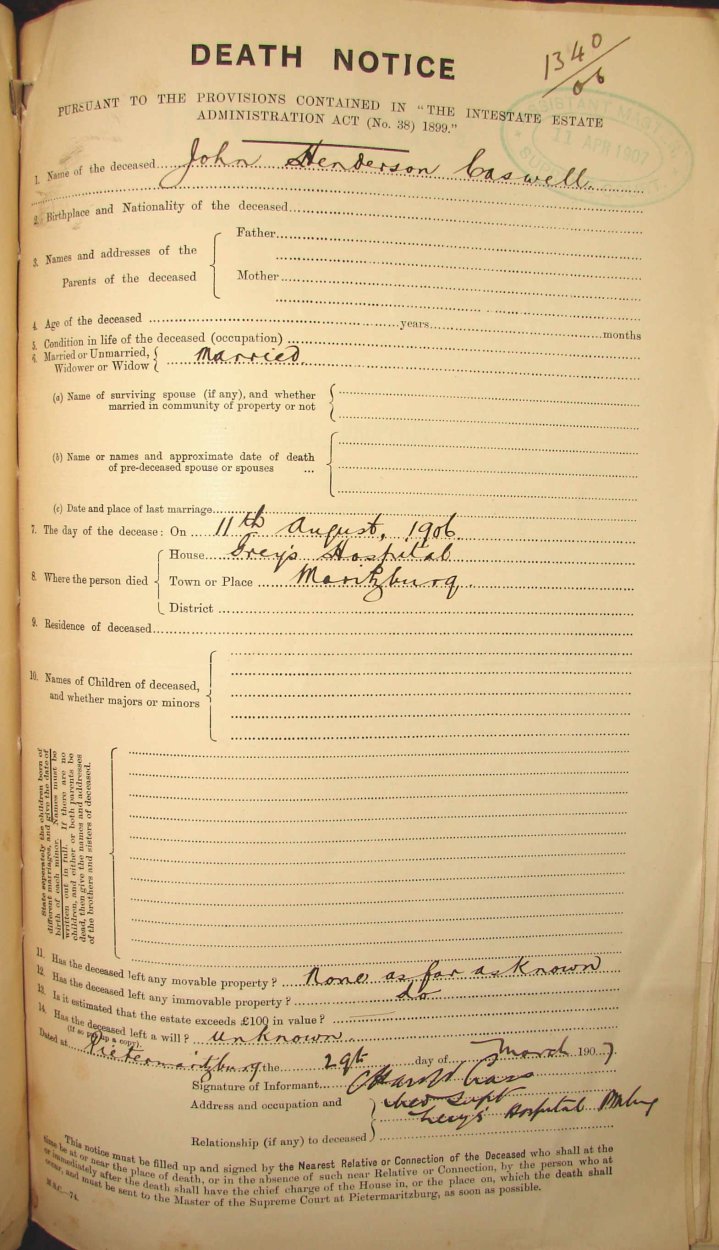 DEATH NOTICE
1340/06
PURSUANT TO THE PROVISIONS CONTAINED IN "THE INTESTATE ESTATE
ADMINISTRATION ACT (No. 38) 1899."
ASSISTANT MASTER
11 APR 1907
1. Name of the deceased John Henderson Caswell
2. Birthplace and Nationality of the deceased
3. Names and addresses of the
Parents of the deceased
Father
Mother
4. Age of the deceased years months
5. Condition in life of the deceased (occupation)
6. Married or Unmarried,
Widower or Widow
Married
(a) Name of surviving spouse (if any), and whether
married in community of property or not
(b) Name or names and approximate date of death
of pre-deceased spouse or spouses ...
(c) Date and place of last marriage
7. The day of the decease: On 11th August, 1906
8. Where the person died
House Grey's Hospital
Town or Place Maritzburg.
District
9. Residence of deceased
10. Names of Children of deceased,
and whether majors or minors
State separately the children born of
different marriages, and give the date of
birth of each minor. Names must be
written out in full. If there are no
children, and either or both parents be
dead, then give the names and addresses
of the brothers and sisters of deceased.
11. Has the deceased left any movable property? None as far as known
12. Has the deceased left any immovable property? do
13. Is it estimated that the estate exceeds £100 in value?
14. Has the deceased left a will? unknown
(If so annex a copy).
Dated at Pietermaritzburg the 29th day of March 1907
Signature of Informant
Address and occupation and Med Supt
Grey's Hospital
Relationship (if any) to deceased
This notice must be filled up and signed by the Nearest Relative or Connection of the Deceased who shall at the
time be at or near the place of death, or in the absence of such near Relative or Connection, by the person who at
or immediately after the death shall have the chief charge of the House in, or the place on, which the death shall
occur, and must be sent to the Master of the Supreme Court at Pietermaritzburg, as soon as possible.